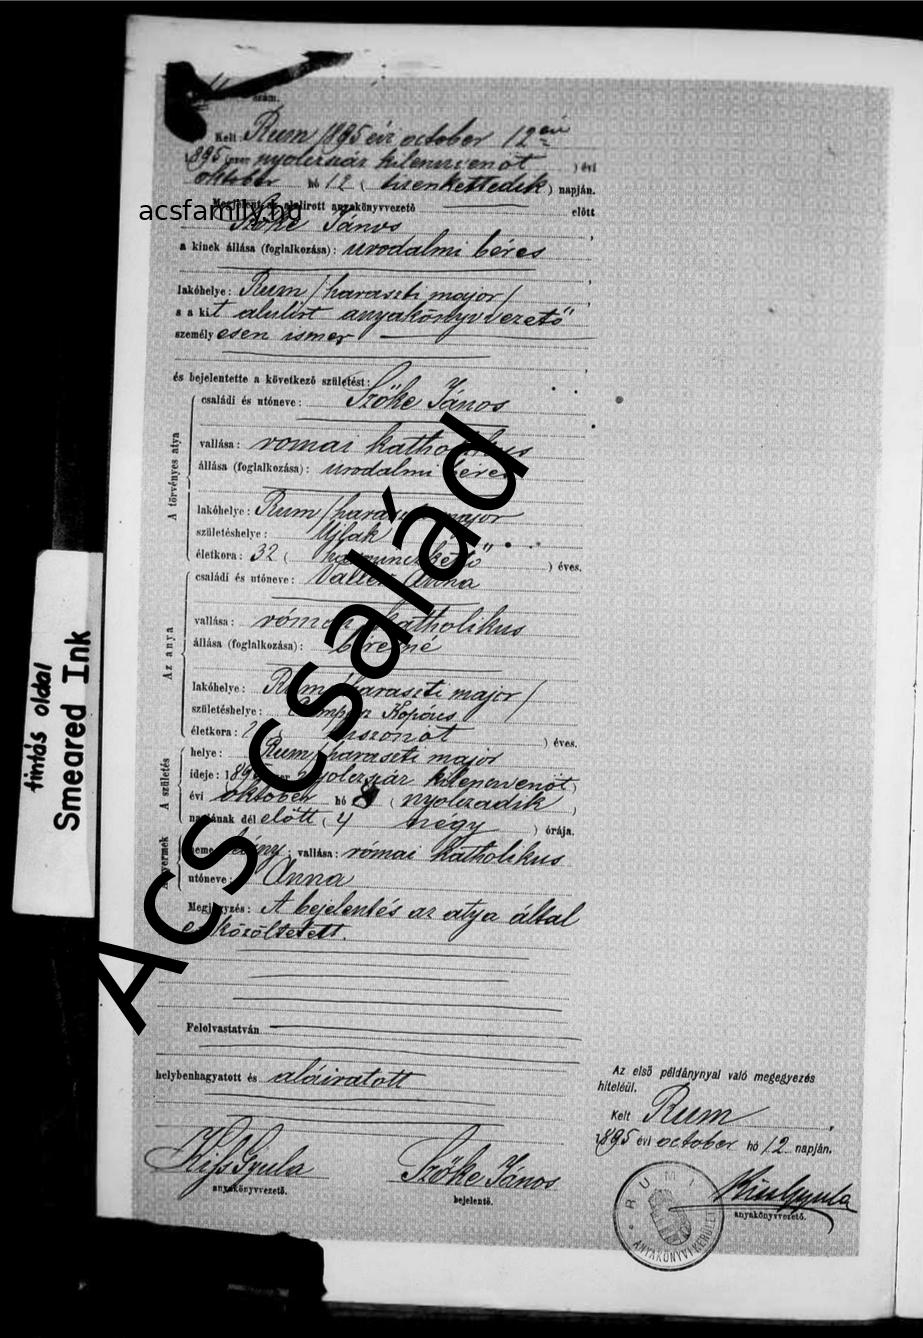 szám.
Kelt Rum 1895 évi october 12 én
1895 ezer nyolczszáz kilenczvenöt ) évi
október hó 12 ( tizenkettedik ) napján.
Megjelent az alulirott anyakönyvvezető előtt
acsfamily.hu
Szőke János ,
a kinek állása (foglalkozása): urodalmi béres
lakóhelye: Rum /haraszti major/ ,
a a kit alulirt anyakönyvvezető
személyesen ismer
és bejelentette a következő születést:
A törvényes atya
családi és utóneve: Szőke János
vallása: romai katholikus
állása (foglalkozása): urodalmi béres
lakóhelye: Rum /haraszti major
születéshelye: Ujlak
életkora: 32 ( harminczkettő ) éves.
Az anya
családi és utóneve: Anna
vallása: római katholikus
állása (foglalkozása): béresné
lakóhelye: Rum /haraszti major/
születéshelye:
életkora: huszonöt ) éves.
A születés
helye: Rum /haraszti major
ideje: 1895 ezer nyolczszáz kilenczvenöt )
évi október hó 8 ( nyolczadik )
napjának dél előtt ( 4 négy ) órája.
A gyermek
neme: leány; vallása: római katholikus
utóneve: Anna
Megjegyzés: A bejelentés az atya által
eszközöltetett.
Felolvastatván
helybenhagyatott és aláiratott
Kiss Gyula
anyakönyvvezető.
Szőke János
bejelentő.
Az első példánynyal való megegyezés
hiteléül.
Kelt Rum ,
1895 évi october hó 12 napján.
Kiss Gyula
anyakönyvvezető.
RUMI
ANYAKÖNYVI KERÜLET
tintás oldal
Smeared Ink
Acs család